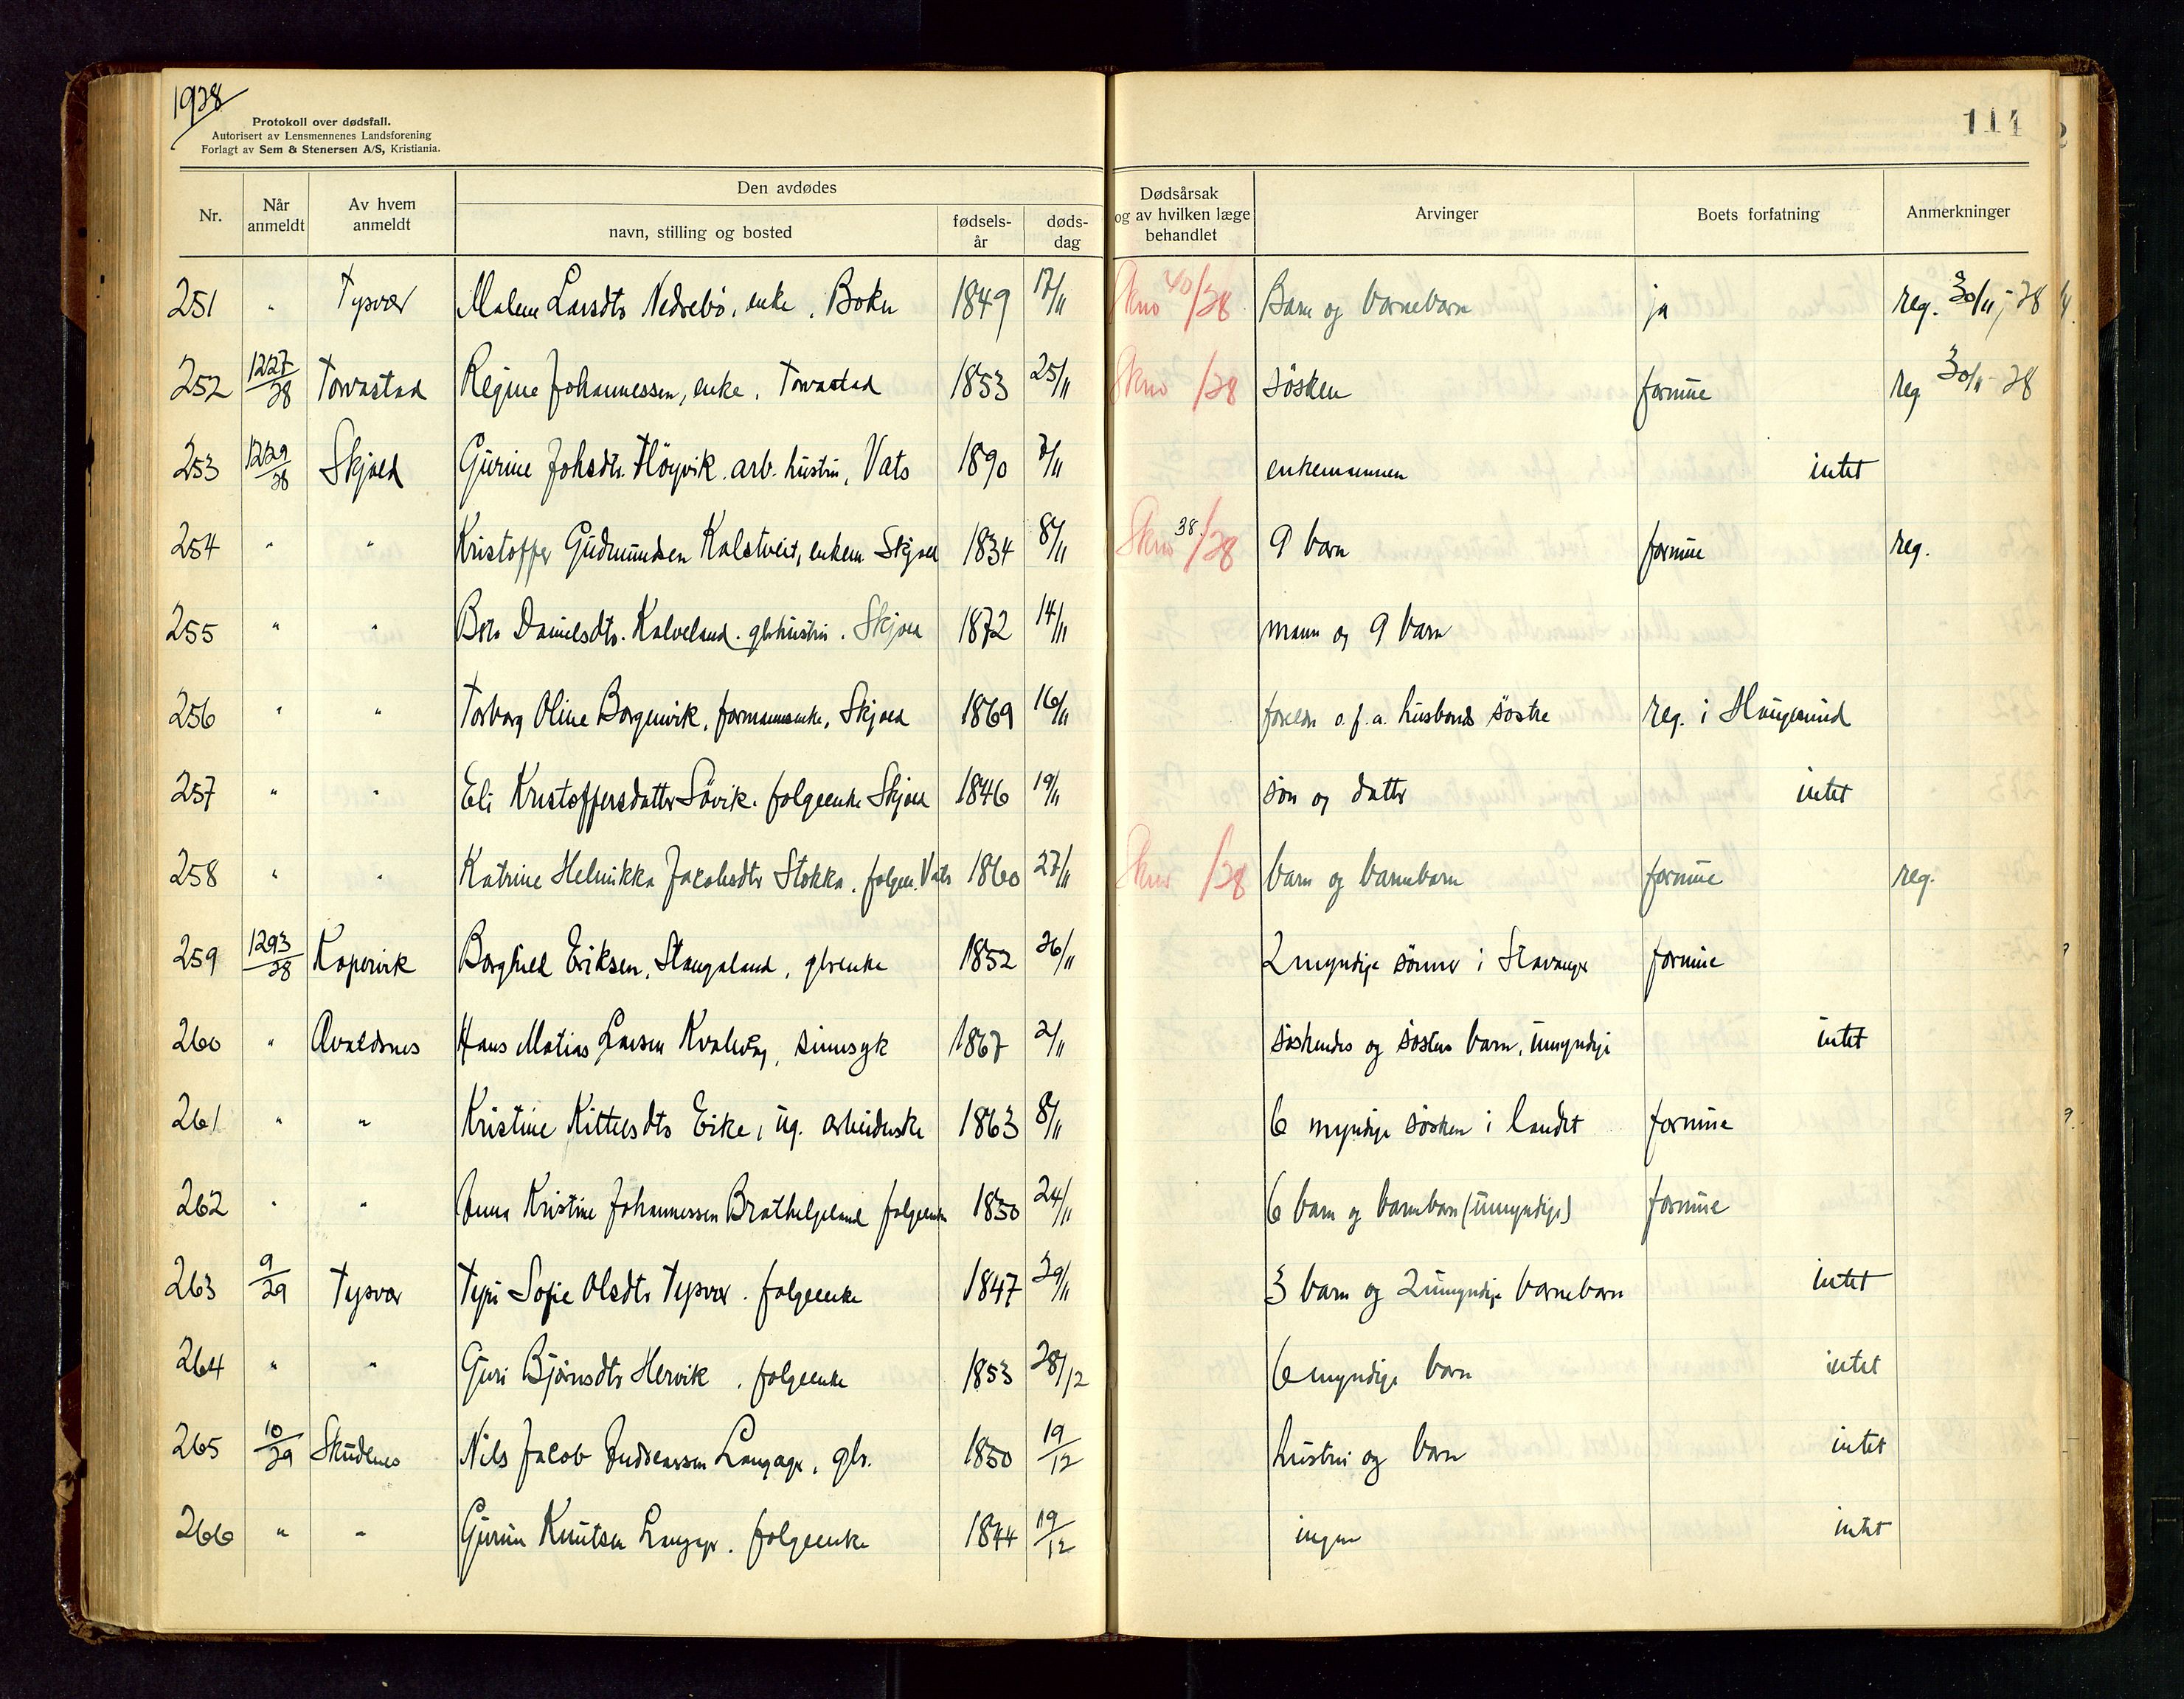 1928
Protokoll over dødsfall.
Autorisert av Lensmennenes Landsforening
Forlagt av Sem & Stenersen A/S, Kristiania.
114
Nr. Når anmeldt Av hvem anmeldt Den avdødes navn, stilling og bosted fødselsår dødsdag Dødsårsak og av hvilken læge behandlet Arvinger Boets forfatning Anmerkninger
251 " Tysvær Malene Larsdtr Nedrebö, enke, Bokn 1849 17/11 40/28 Barn og barnebarn ja reg. 30/11-28
252 1227/28 Torvastad Regine Johannessen, enke, Torvastad 1853 25/11 /28 sösken formue reg 30/11-28
253 1229/28 Skjold Gurine Johsdtr. Höyvik. arb. hustru, Vats 1890 3/11 enkemannen intet
254 " " Kristoffer Gudmundsen Kalstveit, enkem. Skjold 1834 8/11 38/28 9 barn formue reg.
255 " " Berta Danielsdtr. Kalveland. gbrhustru. Skjold 1872 14/11 mann og 9 barn
256 " " Torborg Oline Borgenvik, formannsenke, Skjold 1869 16/11 o. f. a. husbonds söstre reg. i Haugesund
257 " " Eli Kristoffersdatter Sövik. folgeenke Skjold 1846 19/11 sön og datter intet
258 " " Katrine Helmikka Jacobsdtr Stokka. folgee. Vats 1860 27/11 /28 barn og barnebarn formue reg.
259 1293/28 Kopervik Borghild Eriksen, Stangaland, gbrenke 1852 26/11 2 myndige sönner i Stavanger formue
260 " Avaldsnes Hans Matias Larsen Kvalevåg, sinnsyk 1867 2/11 söskendes og sösters barn, umyndige intet
261 " " Kristine Kittelsdtr Eike, ug. arbeiderske 1863 8/11 6 myndige sösken i landet formue
262 " " Anna Kristine Johannessen Bratthelgeland folgeenke 1850 24/11 6 barn og barnebarn (umyndige) formue
263 9/29 Tysvær Sofie Olsdtr Tysvær. folgeenke 1847 29/11 3 barn og 2 umyndige barnebarn intet
264 " " Guri Björnsdtr Hervik, folgeenke 1853 28/12 6 myndige barn intet
265 10/29 Skudenes Nils Jacob Andreassen Langåger, gbr. 1850 19/12 hustru og barn intet
266 " " Gurine Knutsen Langåger. folgeenke 1844 19/12 ingen intet